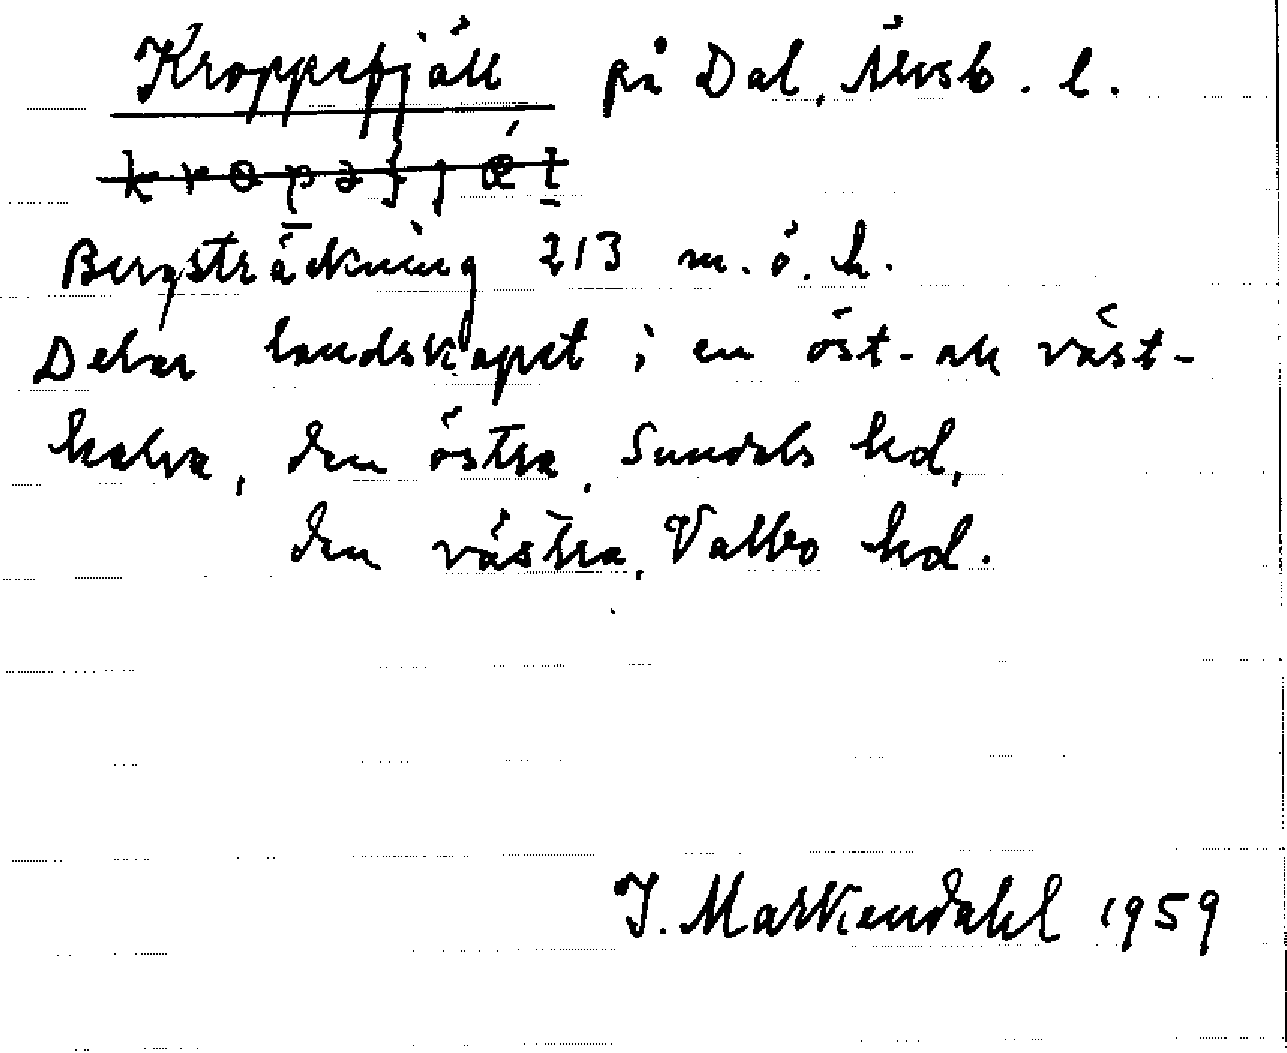 Kroppefjäll på Dal, Älvsb. l.
Bergsträckning 213 m. ö. h.
Delar landskapet i en öst- och väst-
halva, den östra, Sundals hd,
den västra, Valbo hd.
J. Markendahl 1959